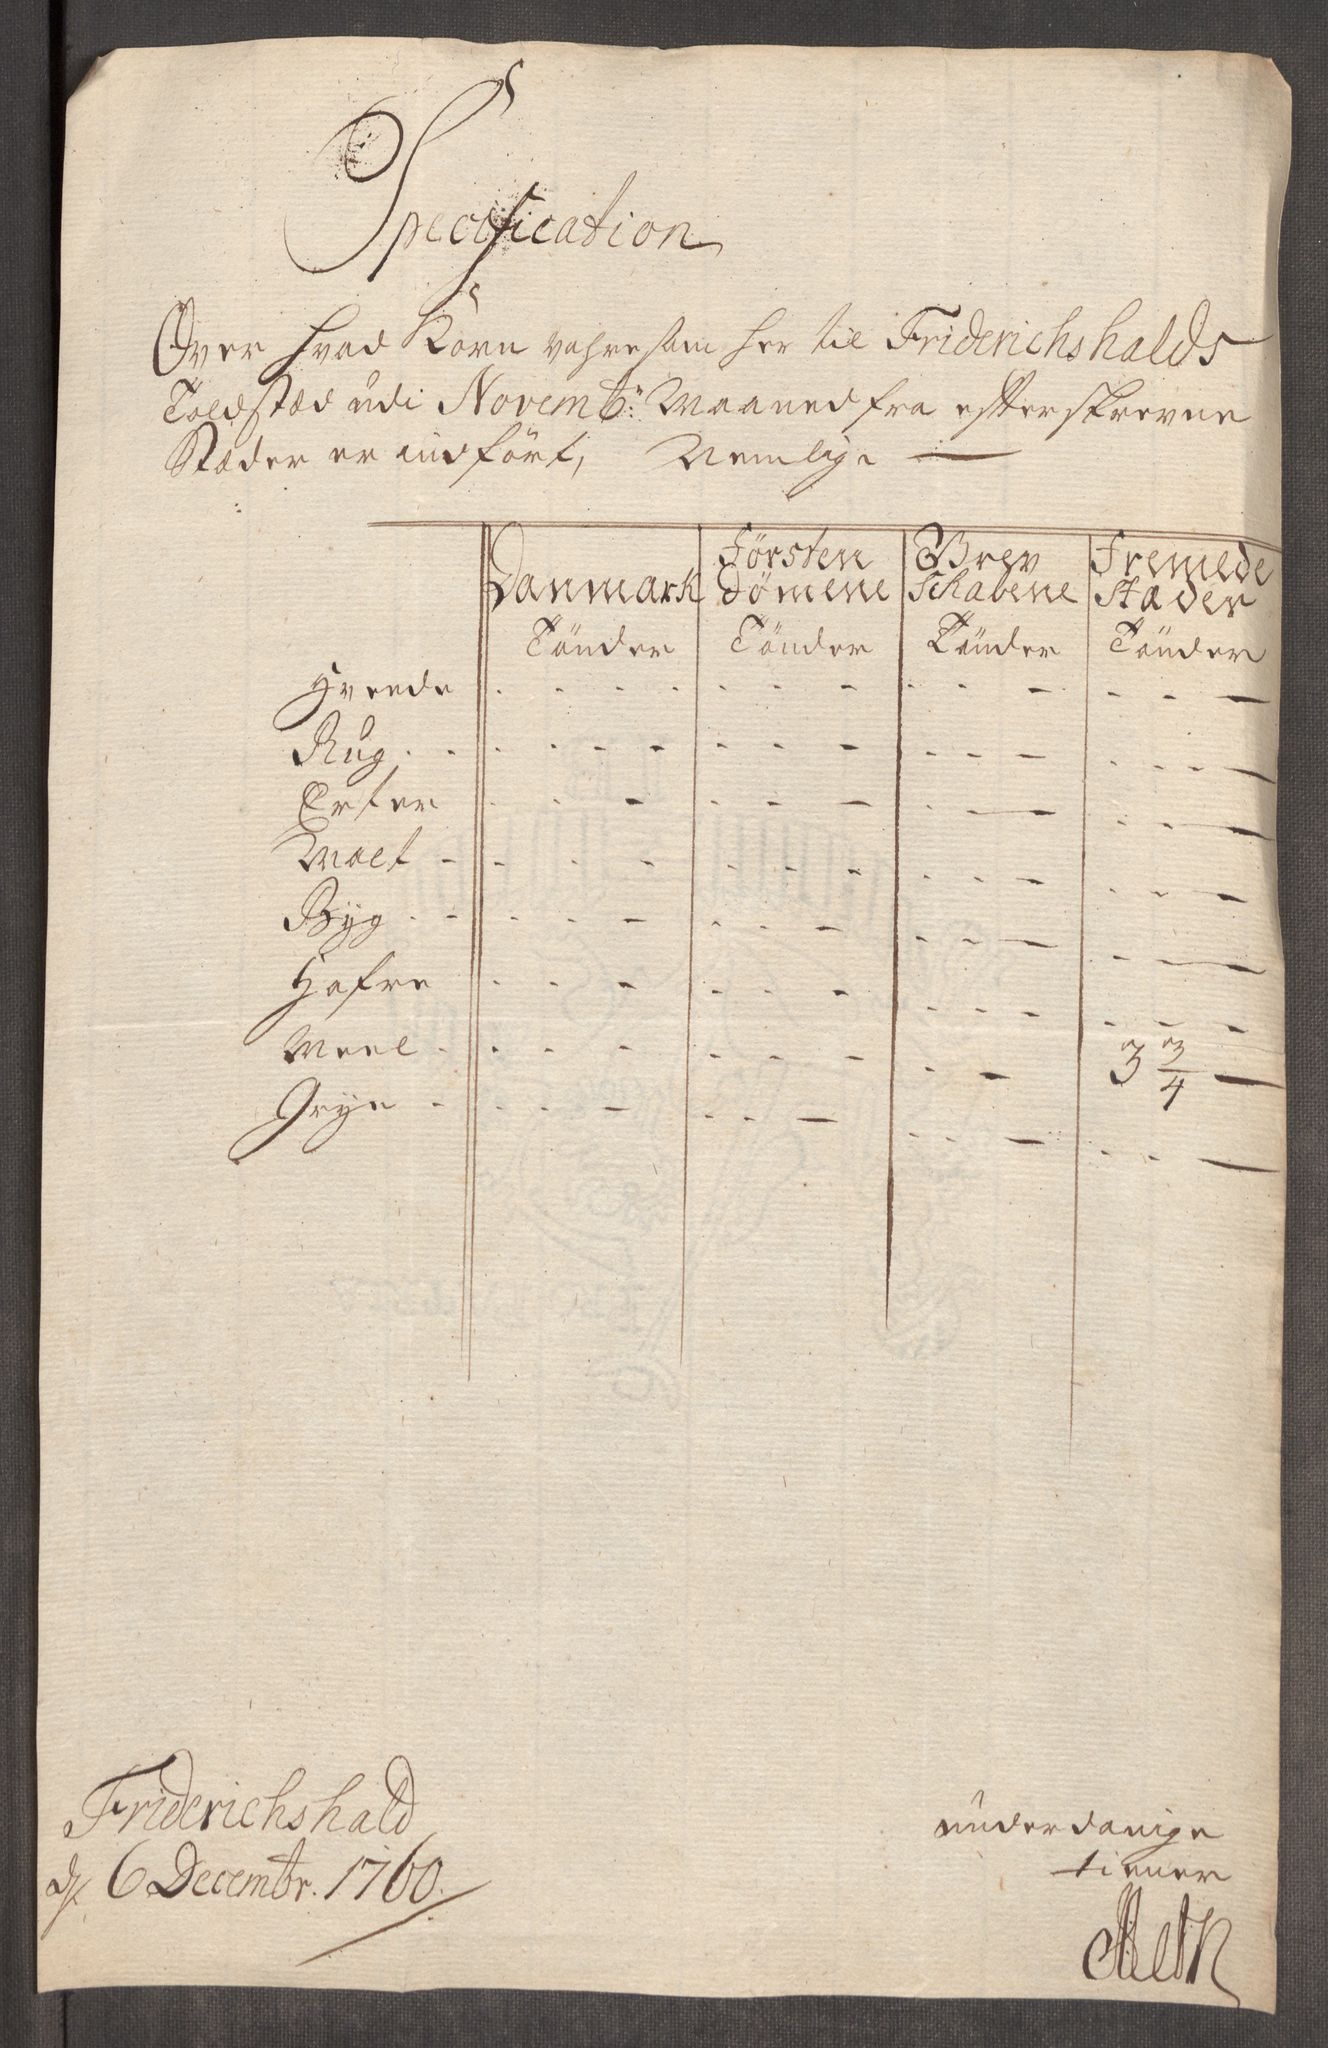 Specification
Over hvad Korn vahre som her til Friderichshalds
Toldstæd udi Novembr: Maaned fra efterskrevne
Stæder er indført, Nemlige —
Danmark Försten dömene Grev schabene Fremede stæder
Tönder Tönder Tönder Tönder
Hveede . . . . . . - . . - . . —
Rug . . . . . - . . - . . - . . . —
Erter . . - . . — . - — . . . —
Malt - . . - . . . - . . - . . - —
Byg . - . . - . . - . - — . . - —
Hafre . . - . . - . . - . - -
Meel . . . - . . . - . - 3 3/4 —
Gryn - . . . - . . — . . — . . —
Friderichshald
d. 6 Decembr. 1760.
underdanige
tiener